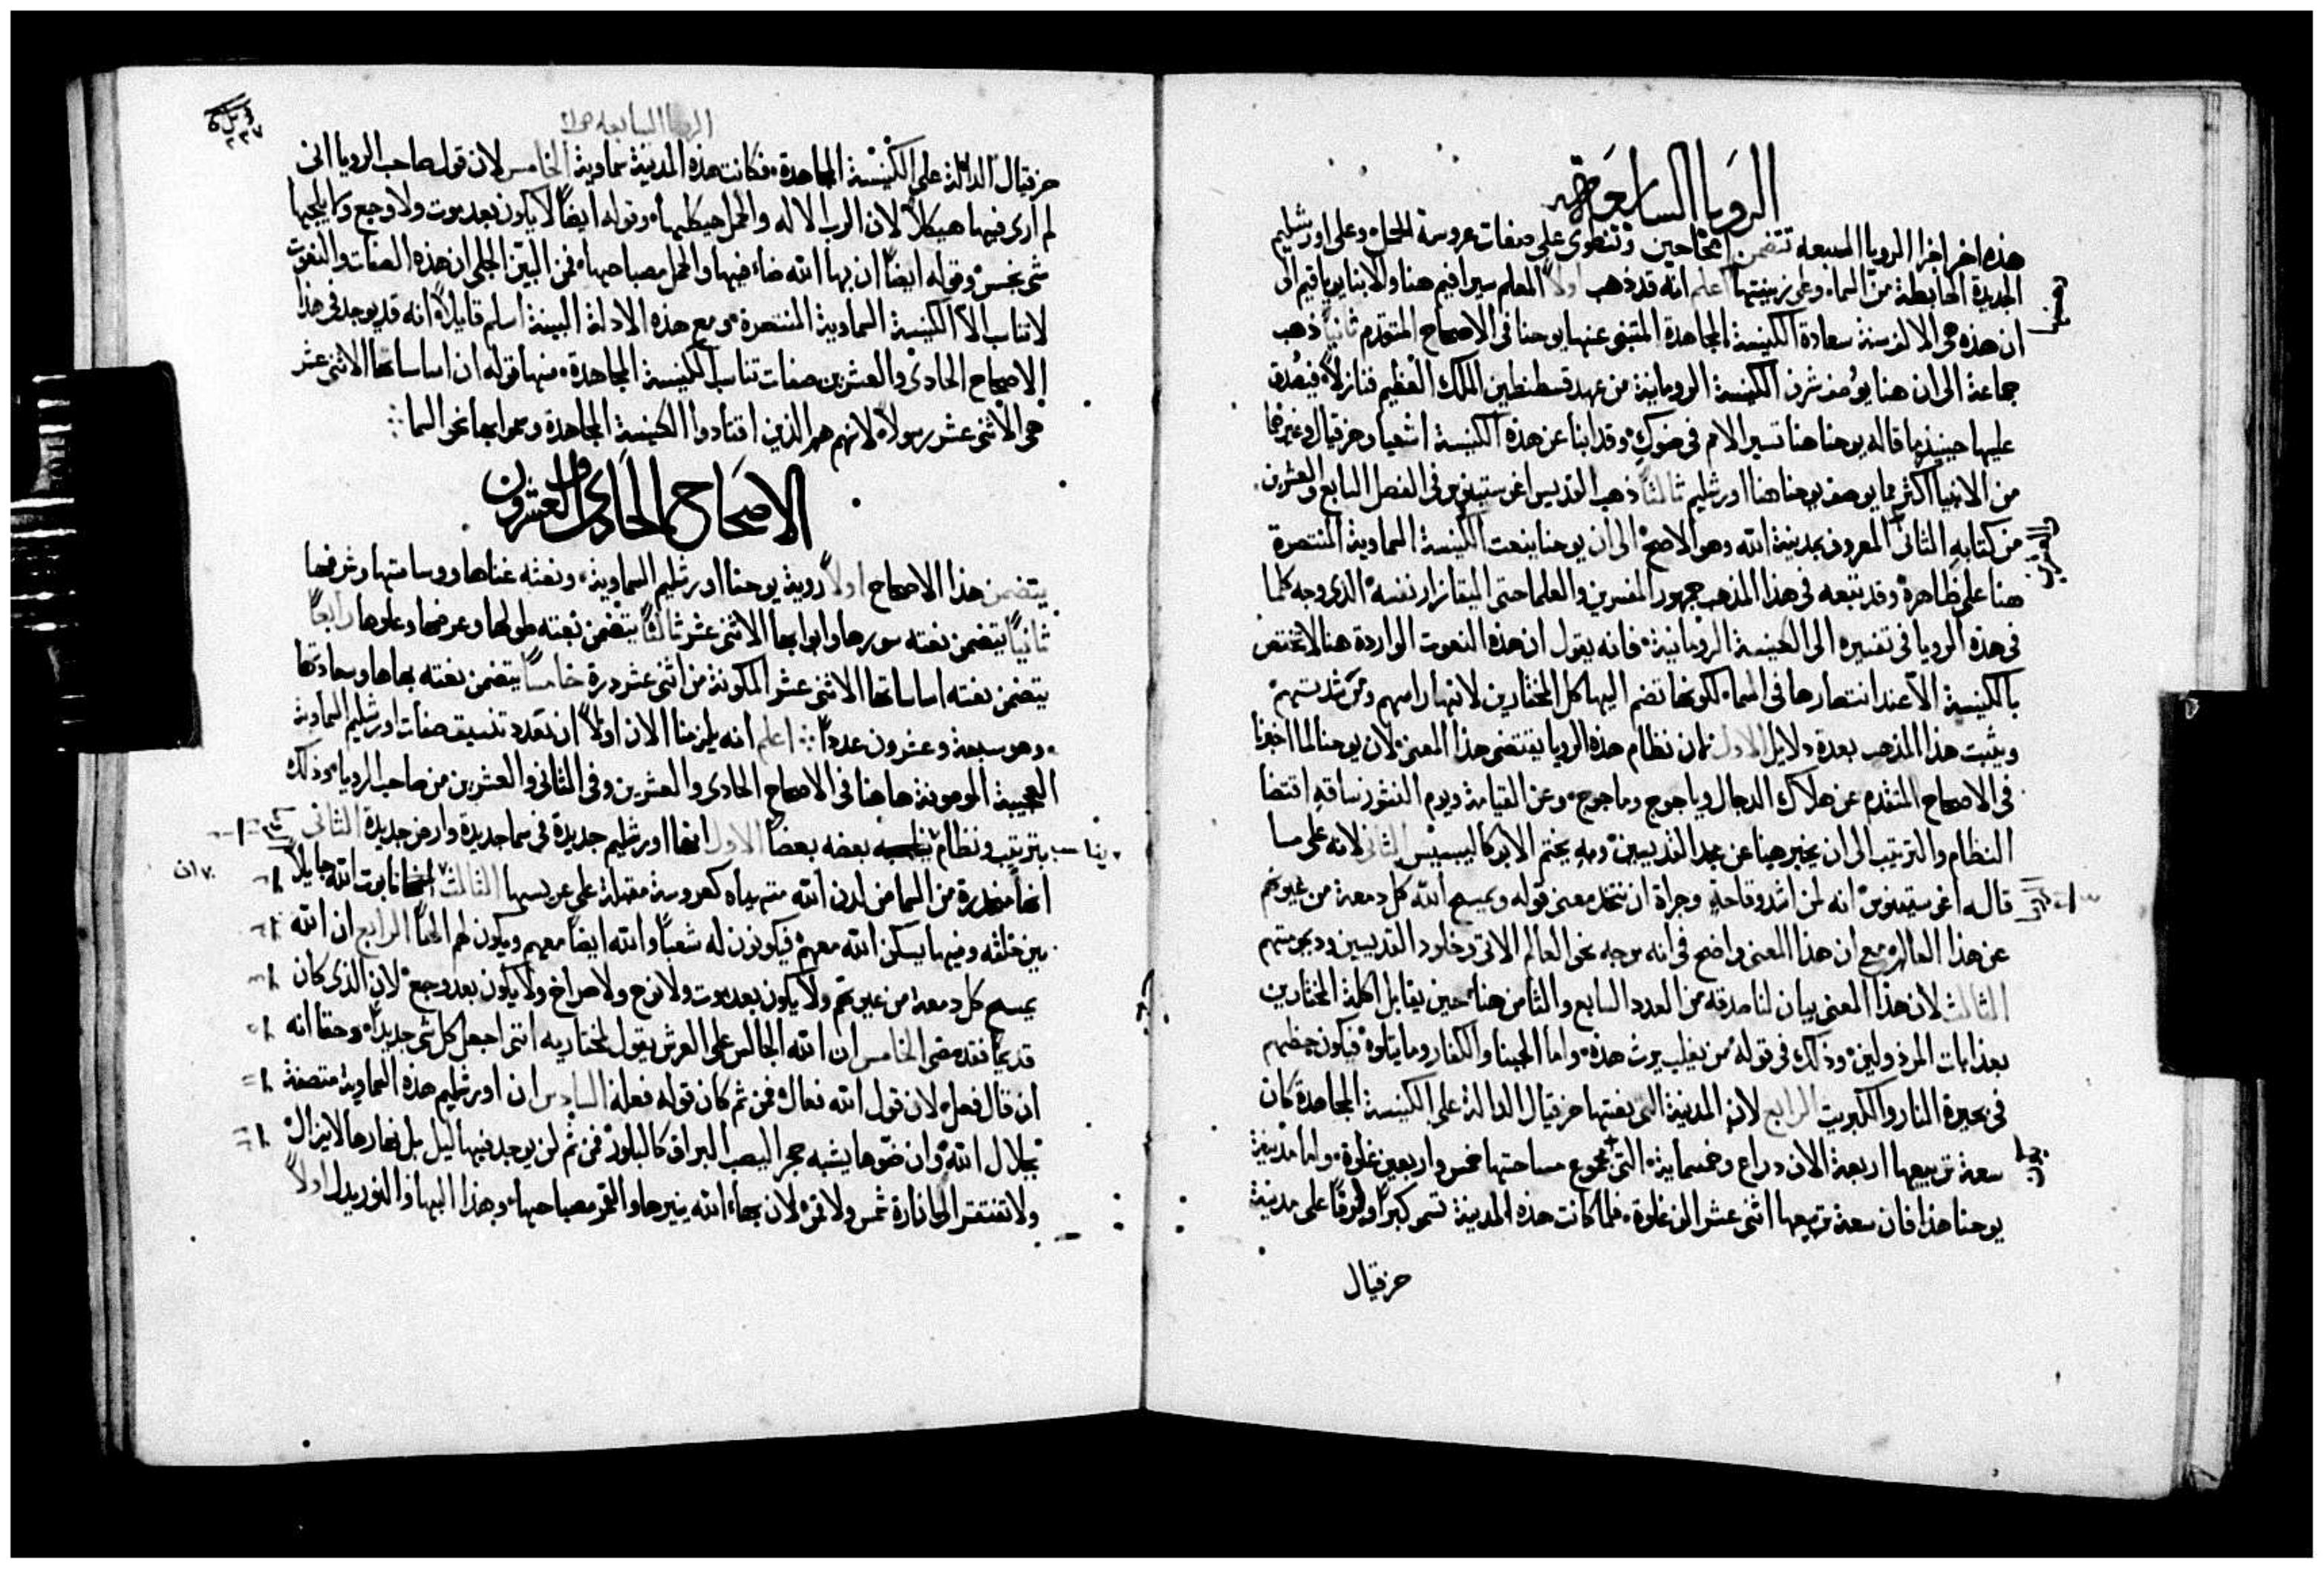 الرويا السابعة
هذه اخر اخر الرويا السبعه تتضمن اصحاحين وتنطوى على صفات عروسة الحمل وعلى اورشليم
الجديدة الهابطة من السماء وعلى زينتها اعلم انه قد ذهب اولاً المعلم سيرافيم هنا والابنا يوياقيم الى
ان هذه هى الالف سنة سعادة الكنيسة المجاهدة المتنبى عنها يوحنا فى الاصحاح المتقدم ثانياً ذهب
جماعة الى ان هنا يوصف شرف الكنيسة الرومانية من عهد قسطنطين الملك العظيم فنازلاً فيصدق
عليها حينيذٍ ما قاله يوحنا هنا تسير الامم فى ضوك وقد انبا عن هذه الكنيسة اشعيا وحزقيال وغيرهما
من الانبيا اكثر مما يوصف يوحنا هنا اورشليم ثالثاً ذهب القديس اغوستينوس فى الفصل السابع والعشرين
من كتابه الثانى المعروف بمدينة الله وهو الاصح الى ان يوحنا ينعت الكنيسة السماوية المنتصرة
هنا على ظاهره وقد تبعه فى هذا المذهب جمهور المفسرين والعلما حتى اليقازار نفسه الذى وجه كلما
فى هذه الرويا فى تفسيره الى الكنيسة الرومانية فانه يقول ان هذه النعوت الواردة هنا لا تختص
بالكنيسة الا عند انتصارها فى السماء لكونها تضم اليها كل المختارين لانتهار امهم ومن شدتهم
ويثبت هذا المذهب بعدة دلايل الاول ان نظام هذه الرويا يقتضى هذا المعنى لان يوحنا لما اخبرنا
فى الاصحاح المتقدم عن هلاك الدجال وياجوج وماجوج وعن القيامة ويوم النشور ساقه اقتضا
النظام والترتيب الى ان يخبر هينا عن مجد القديسين وبه يختم الابوكاليبسيس الثانى لانه على ما
قاله اغوستينوس انه لمن اشد وقاحةٍ وجراة ان نتخذ معنى قوله ويمسح الله كل دمعة من عيونهم
عن هذا العالم مع ان هذا المعنى واضح فى انه موجه نحو العالم الاتى وخلود القديسين وديمومتهم
الثالث لان هذا المعنى بيان لنا صدقه من العدد السابع والثامن هنا حين يقابل اكلة المختارين
بعذابات المرذولين وذلك فى قوله من يغلب يرث هذه واما الجبنا والكفار وما يتلوه فيكون حظهم
فى بحيرة النار والكبريت الرابع لان المدينة التى نعتها حزقيال الدالة على الكنيسة المجاهدة كان
سعة تربيعها اربعة الاف دراع وخمسماية التى مجموع مساحتها خمس واربعين غلوة واما مدينة
يوحنا هذا فان سعة تربيعها اثنى عشر الف غلوة فلما كانت هذه المدينة تسمو كبراً وفرقاً على مدينة
حزقيال
الرويا السابعه
حزقيال الدالة على الكنيسة المجاهدة فكانت هذه المدينة سماوية الخامس لان قول صاحب الرويا انى
لم ارى فيها هيكلاً لان الرب الاله والحمل هيكلها وقوله ايضاً لا يكون بعد موت ولا وجع ولا يلجها
شى نجس وقوله ايضاً ان بها الله ضاء فيها والحمل مصباحها فمن البيّن الجلى ان هذه الصفات والنعوت
لا تناسب الا الكنيسة السماوية المنتصرة ومع هذه الادلة البينة اسلم قايلاً انه قد يوجد فى هذا
الاصحاح الحادى والعشرين صفات تناسب الكنيسة المجاهدة منها قوله ان اساساتها الاثنى عشر
هى الاثنى عشر رسولاً لانهم هم الذين اقتادوا الكنيسة المجاهدة وعوابها نحو السما
الاصحاح الحادى والعشرون
يتضمن هذا الاصحاح اولاً روية يوحنا اورشليم السماوية ونعته غناها ووسامتها وشرفها
ثانياً يتضمن نعته سورها وابوابها الاثنى عشر ثالثاً يتضمن نعته طولها وعرضها وعلوها رابعاً
يتضمن نعته اساساتها الاثنى عشر المكونة من اثنى عشر درة خامساً يتضمن نعته بهاها وسعادتها
وهو سبعة وعشرون عدداً اعلم انه يلزمنا الان اولاً ان نعدد تنسيق صفات اورشليم السماوية
العجيبة الموصوفة هاهنا فى الاصحاح الحادى والعشرين وفى الثانى والعشرين من صاحب الرويا وذلك
بترتيب ونظام يناسب بعضه بعضاً الاول انها اورشليم جديدة فى سما جديدة وارض جديدة الثانى
انها منحدرة من السما من لدن الله متهيأه كعروسة مقبلة على عريسها الثالث ان تابوت الله جايلاً
بين خلقه وفيما يسكن الله معهم فيكونون له شعباً والله ايضاً معهم ويكون لهم الهاً الرابع ان الله
يمسح كل دمعة من عيونهم ولا يكون بعد موت ولا نوح ولا صراخ ولا يكون بعد وجع لان الذى كان
قديماً فقد مضى الخامس ان الله الجالس على العرش يقول لمختاريه اننى اجعل كل شى جديداً وحقا انه
ان قال فعل لان قول الله فعال فمن ثم كان قوله فعله السادس ان اورشليم هذه السماوية متصفة
بجلال الله وان ضوها يشبه حجر اليصب البراق كالبلور فمن ثم لن يوجد فيها ليل بل نهارها لا يزال
ولا تفتقر الى انارة شمس ولا قمر لان بهاء الله ينيرها والقمر مصباحها وبهذا البها والنور يدل اولاً